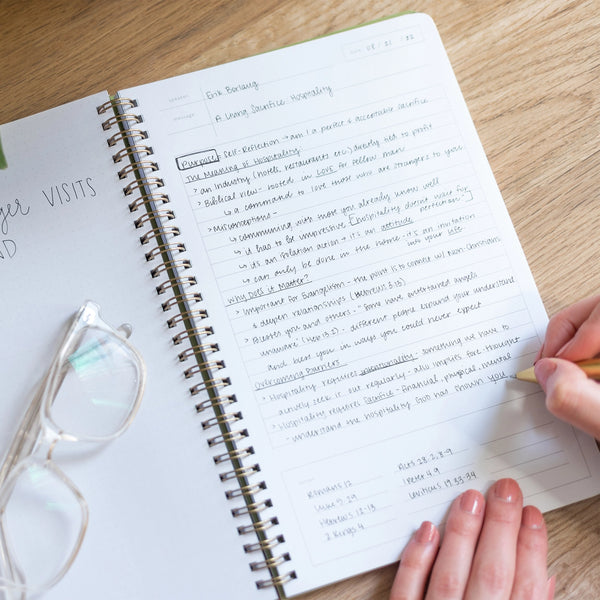 VISITS
SPEAKER
Erik Borlaug
DATE 08 / 21 / 22
MESSAGE
A Living Sacrifice: Hospitality
Purpose: Self-Reflection → am I a perfect & acceptable sacrifice
The Meaning of Hospitality
> an Industry (hotels, restaurants, etc.) directly tied to profit
> Biblical view - rooted in LOVE for fellow man
↳ a command to love those who are strangers to you
> Misconceptions -
↳ communing with those you already know well
↳ it has to be impressive [hospitality doesn't wait for perfection]
↳ it's an isolation action → it's an attitude
↳ can only be done in the home - it's an invitation into your life
Why Does it Matter?
> Important for Evangelism - the point is to commune w/ Non-Christians & deepen relationships
> Blesses you and others - "some have entertained angels
unaware" (Heb 13.2) - different people expand your understanding
and bless you in ways you could never expect
Overcoming Barriers
> Hospitality requires intentionality - something we have to
actively seek it out regularly - also implies fore thought
> Hospitality requires Sacrifice - financial, physical, mental
- understand the hospitality God has shown you
Romans 12
Luke 5.29
Hebrews 12-13
2 Kings 4
Acts 28.2, 8-9
1 Peter 4.9
Leviticus 19.33-34